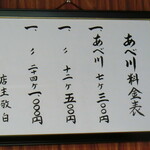 あべ川料金表
一、あべ川 七ケ 三〇〇円
一、〃 十二ケ 五〇〇円
一、〃 二十四ケ 一、〇〇〇円
店主敬白